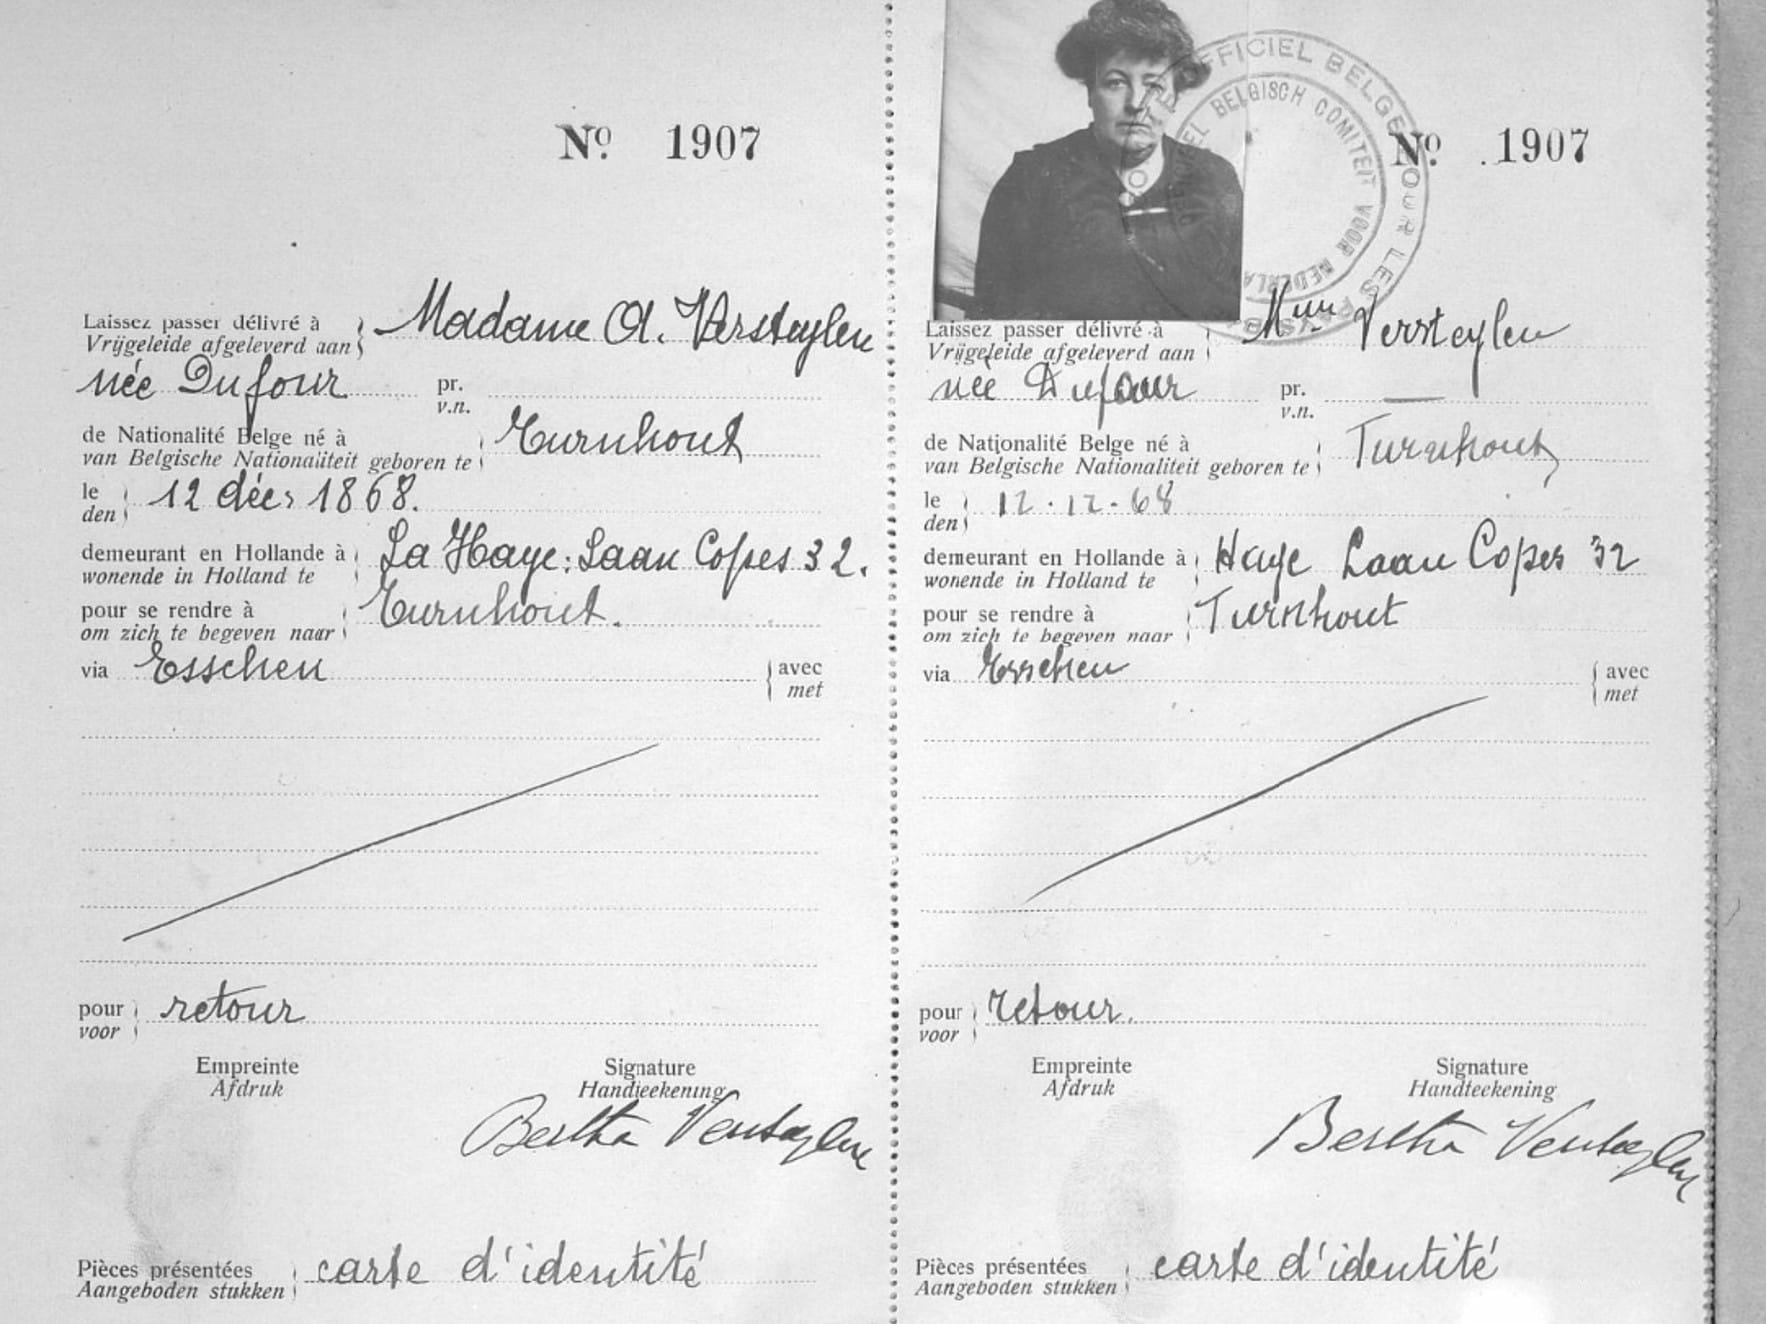 Nº 1907
Laissez passer délivré à
Vrijgeleide afgeleverd aan
Madame A. Versteylen
née Dufour pr.
v.n.
de Nationalité Belge né à
van Belgische Nationaliteit geboren te
Turnhout
le
den
12 déc. 1868.
demeurant en Hollande à
wonende in Holland te
La Haye: Laan Copes 32.
pour se rendre à
om zich te begeven naar
Turnhout.
via Esschen avec
met
pour
voor
retour
Empreinte Signature
Afdruk Handteekening
Bertha Versteylen
Pièces présentées
Aangeboden stukken
carte d'identité
OFFICIEL BELGE POUR LES PAYS-B
BELGISCH COMITEIT VOOR NEDERLA
Nº 1907
Laissez passer délivré à
Vrijgeleide afgeleverd aan
Mme Versteylen
née Dufour pr. —
v.n.
de Nationalité Belge né à
van Belgische Nationaliteit geboren te
Turnhout
le
den
12.12.68
demeurant en Hollande à
wonende in Holland te
Haye Laan Copes 32
pour se rendre à
om zich te begeven naar
Turnhout
via Esschen avec
met
pour
voor
retour.
Empreinte Signature
Afdruk Handteekening
Bertha Versteylen
Pièces présentées
Aangeboden stukken
carte d'identité